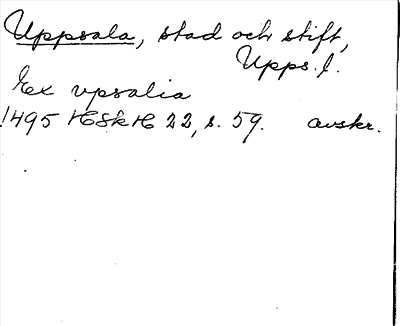 Uppsala, stad och stift,
Upps. l.
Ex vpsalia
1495 HSkH 22, s. 59. avskr.